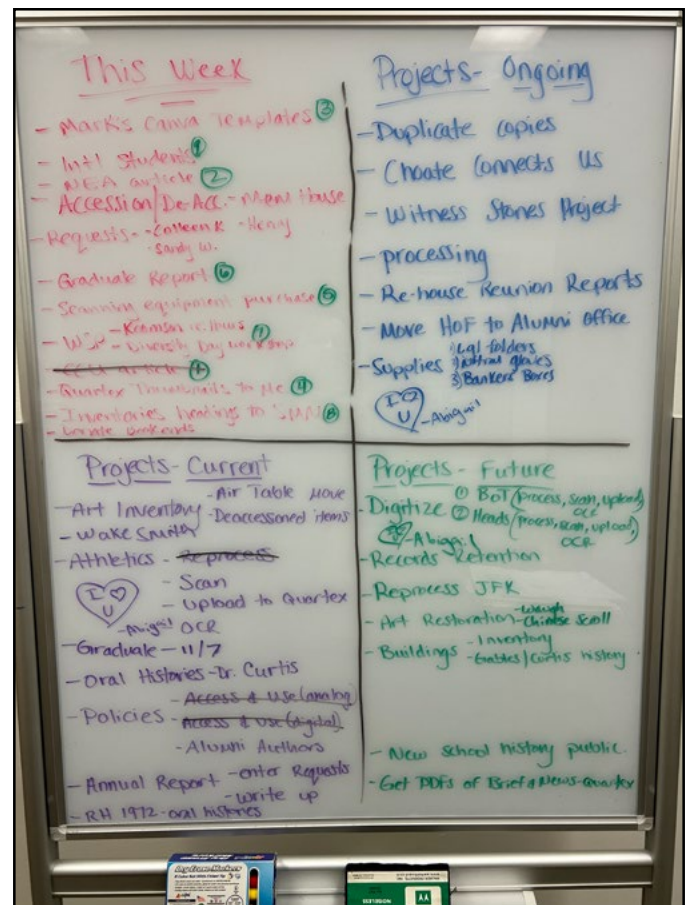 This Week
- Mark's Canva Templates ③
- Int'l Students ①
- NEA article ②
- Accession/De-Acc. - Mem House
- Requests - - Colleen K. - Henry
- Sandy W.
- Graduate Report ⑥
- Scanning equipment purchase ⑤
- WSP -
- Diversity Day workshop
- article
- Quartex Thumbnails to Me ④
- Inventories headings to SMM ⑧
- bookends
Projects - Ongoing
- Duplicate copies
- Choate Connects Us
- Witness Stones Project
- processing
- Re-house Reunion Reports
- Move HoF to Alumni Office
- Supplies 1) Lgl folders
2) Nitrile gloves
3) Bankers Boxes
I ♡
U
- Abigail
Projects - Current
- Art Inventory - Air Table move
- Deaccessoned items
- Wake Smith
- Athletics - Reprocess
- Scan
- Upload to Quartex
OCR
I ♡
U
- Abigail
- Graduate - 11/7
- Oral Histories - Dr. Curtis
- Policies - Access & Use (analog)
- Access & Use (digital)
- Alumni Authors
- Annual Report - enter Requests
- Write up
- RH 1972 - oral histories
Projects - Future
- Digitize ① BoT (process, scan, upload)
OCR
② Heads (process, scan, upload,)
OCR
- Abigail
- Records Retention
- Reprocess JFK
- Art Restoration - Waugh
- Chinese Scroll
- Buildings - Inventory
- Gables/Curtis history
- New school history public.
- Get PDFs of Brief & News - Quarter